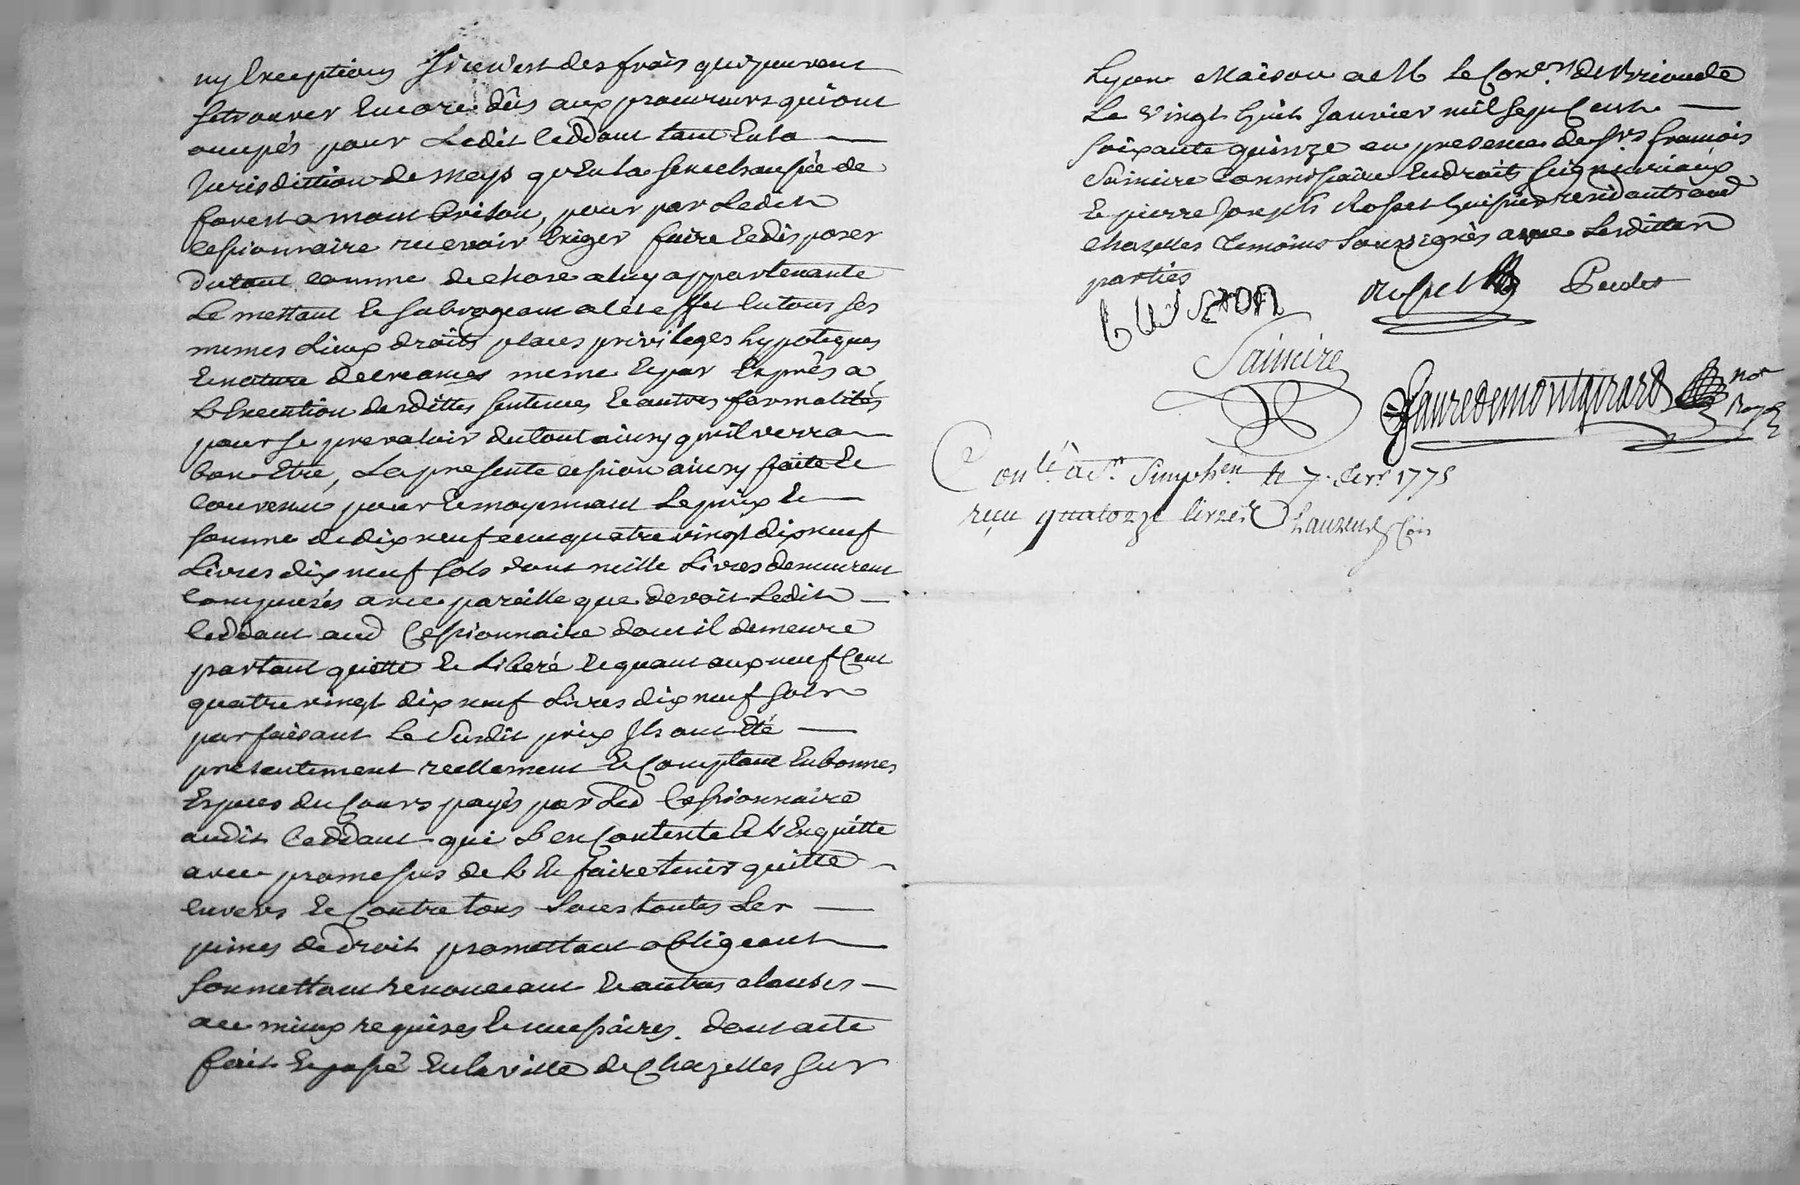 ny Exceptions Si ce n'est des frais qui peuvent
se trouver Encore dûs aux procureurs qui ont
occupés pour Ledit Ceddant tant En la
Jurisdittion de meys qu'En la senechaussée de
forest a montbrison, pour par Ledit
Cessionnaire recevoir Exiger faire Et disposer
du tout comme de chose a luy appartenante
Le mettant Et Subrogeant a cet effet En tous ses
memes Lieux droits places privileges hypoteques
Et nature de creances meme Et par Exprès a
L'Execution desdittes sentences Et autres formalités
pour se prevaloir du tout ainsy qu'il verra
bon Etre, La presente cession ainsy faite Et
convenu pour Et moyennant Le prix Et
somme de dix neuf cent quatre vingt dix neuf
Livres dix neuf sols dont mille Livres demeurent
compensés avec pareille que devoit Ledit
Ceddant aud Cessionnaire dont il demeure
partant quitte Et Liberé Et quant aux neuf Cent
quatre vingt dix neuf Livres dix neuf sols
parfaisant Le Susdit prix Ils ont été
presentement reellement Et Comptant En bonnes
Especes du Cours payés par Led Cessionnaire
audit Ceddant qui s'en Contente Et L'En quitte
avec promesses de L'En faire tenir quitte
envers Et Contre tous sous toutes Les
peines de droit promettant obligeant
soumettant renonceant Et autres clauses
a ce mieux requises Et necessaires. dont acte
fait Et passé En la ville de Chazelles sur
Lyon Maison de M Le Con.er de Brioude
Le vingt huit Janvier mil Sept Cent
soixante quinze en presence de srs francois
Saincire Commissaire En droits Seigneuriaux
Et pierre Joseph Rosset huissier residants aud
Chazelles temoins soussignés avec Lesdittes
parties
Rosset
Saincire
fauredemontgirard not
Royal
Contlé à St. Simphen le 7. fevr 1775
reçu quatorze livres